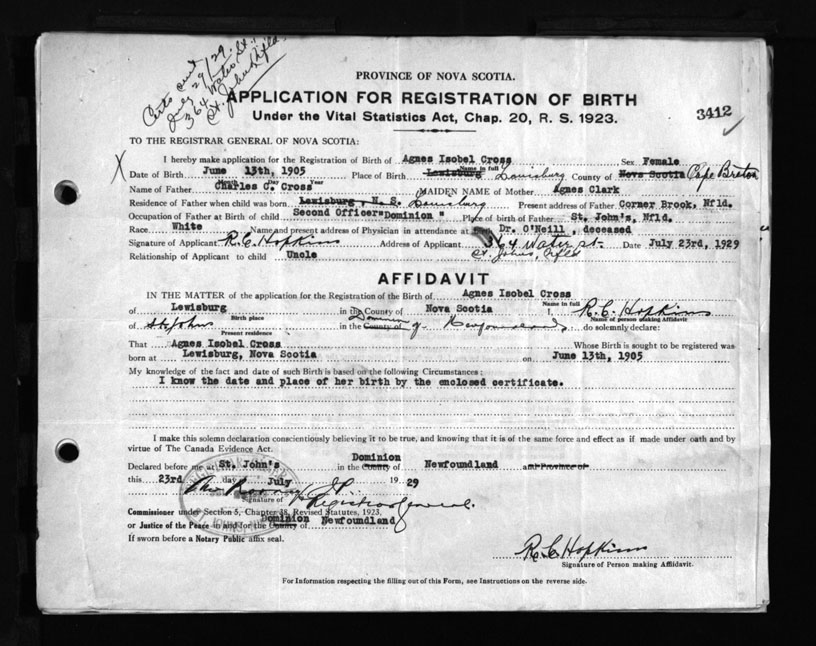 Certs sent
July 29/29.
364 Water St.,
St. John's Nfld.
PROVINCE OF NOVA SCOTIA.
APPLICATION FOR REGISTRATION OF BIRTH
Under the Vital Statistics Act, Chap. 20, R. S. 1923.
3412
TO THE REGISTRAR GENERAL OF NOVA SCOTIA:
I hereby make application for the Registration of Birth of Agnes Isobel Cross Sex Female
Name in full
X Date of Birth June 13th, 1905 Place of Birth Lewisburg Louisburg County of Nova Scotia Cape Breton
Day Year
Name of Father Charles C. Cross MAIDEN NAME of Mother Agnes Clark
Residence of Father when child was born Lewisburg, N. S. Louisburg Present address of Father Corner Brook, Nfld.
Occupation of Father at Birth of child Second Officer "Dominion" Place of birth of Father St. John's, Nfld.
Race White Name and present address of Physician in attendance at Dr. O'Neill, deceased
Signature of Applicant R.C. Hopkins Address of Applicant 364 Water st. Date July 23rd, 1929
St. Johns, Nfld
Relationship of Applicant to child Uncle
AFFIDAVIT
IN THE MATTER of the application for the Registration of the Birth of Agnes Isobel Cross
Name in full
of Lewisburg in the County of Nova Scotia I, R.C. Hopkins
Birth place Name of person making Affidavit
of St. Johns in the County of Dominion of Newfoundland do solemnly declare:
Present residence
That Agnes Isobel Cross Whose Birth is sought to be registered was
born at Lewisburg, Nova Scotia on June 13th, 1905
My knowledge of the fact and date of such Birth is based on the following Circumstances:
I know the date and place of her birth by the enclosed certificate.
I make this solemn declaration conscientiously believing it to be true, and knowing that it is of the same force and effect as if made under oath and by
virtue of The Canada Evidence Act.
Dominion
Declared before me at St. John's in the County of Newfoundland and Province of
this 23rd day of July 1929
J.P.
Signature of Registrar General.
Commissioner under Section 5, Chapter 38, Revised Statutes, 1923,
or Justice of the Peace in and for the County of Dominion Newfoundland
If sworn before a Notary Public affix seal.
R.C. Hopkins
Signature of Person making Affidavit.
For Information respecting the filling out of this Form, see Instructions on the reverse side.